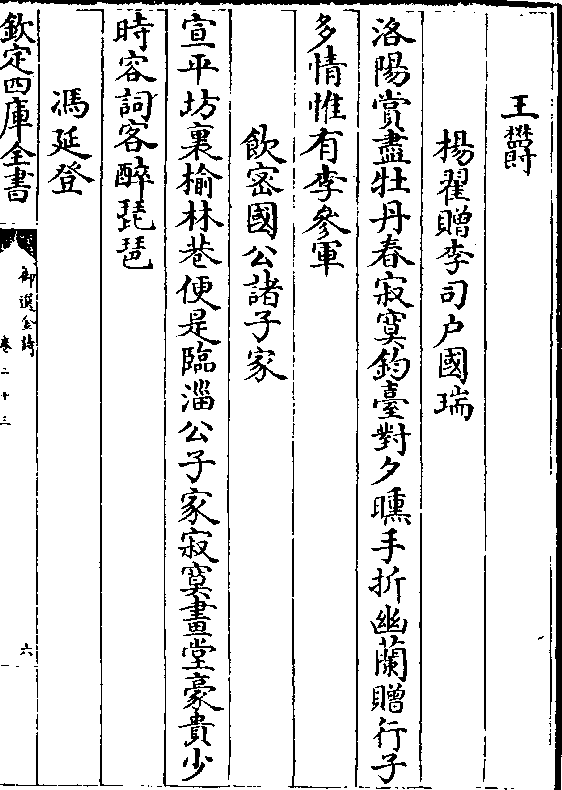 王欝
楊翟贈李司户國瑞
洛陽賞盡牡丹春寂寞鈞臺對夕曛手折幽蘭贈行子
多情惟有李參軍
飲密國公諸子家
宣平坊裏榆林巷便是臨淄公子家寂寞畫堂豪貴少
時容詞客醉琵琶
馮延登
欽定四庫全書
御選金詩
卷二十三
六